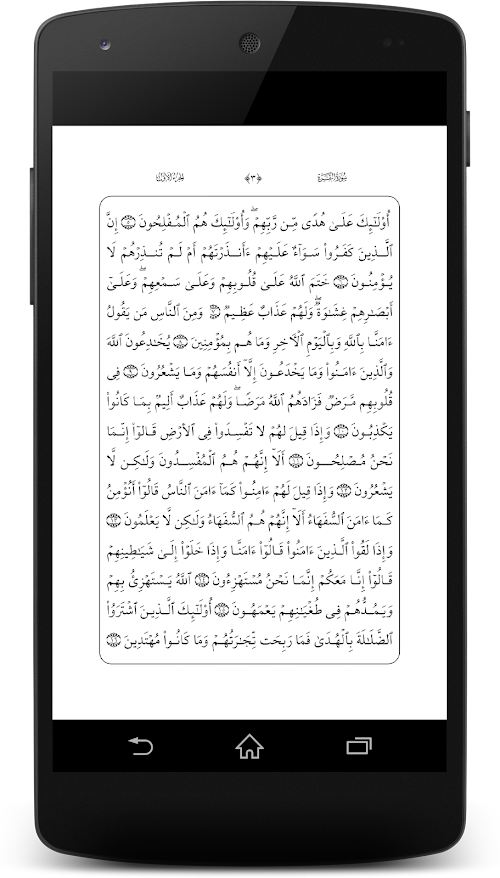 سُورَةُ البَقَرَةِ ﴿٣﴾ الجزء الأول
أُوْلَـٰٓئِكَ عَلَىٰ هُدًى مِّن رَّبِّهِمْ ۖ وَأُوْلَـٰٓئِكَ هُمُ ٱلْمُفْلِحُونَ ۝٥ إِنَّ
ٱلَّذِينَ كَفَرُوا۟ سَوَآءٌ عَلَيْهِمْ ءَأَنذَرْتَهُمْ أَمْ لَمْ تُنذِرْهُمْ لَا
يُؤْمِنُونَ ۝٦ خَتَمَ ٱللَّهُ عَلَىٰ قُلُوبِهِمْ وَعَلَىٰ سَمْعِهِمْ ۖ وَعَلَىٰٓ
أَبْصَـٰرِهِمْ غِشَـٰوَةٌ ۖ وَلَهُمْ عَذَابٌ عَظِيمٌ ۝٧ وَمِنَ ٱلنَّاسِ مَن يَقُولُ
ءَامَنَّا بِٱللَّهِ وَبِٱلْيَوْمِ ٱلْـَٔاخِرِ وَمَا هُم بِمُؤْمِنِينَ ۝٨ يُخَـٰدِعُونَ ٱللَّهَ
وَٱلَّذِينَ ءَامَنُوا۟ وَمَا يَخْدَعُونَ إِلَّآ أَنفُسَهُمْ وَمَا يَشْعُرُونَ ۝٩ فِى
قُلُوبِهِم مَّرَضٌ فَزَادَهُمُ ٱللَّهُ مَرَضًا ۖ وَلَهُمْ عَذَابٌ أَلِيمٌۢ بِمَا كَانُوا۟
يَكْذِبُونَ ۝١٠ وَإِذَا قِيلَ لَهُمْ لَا تُفْسِدُوا۟ فِى ٱلْأَرْضِ قَالُوٓا۟ إِنَّمَا
نَحْنُ مُصْلِحُونَ ۝١١ أَلَآ إِنَّهُمْ هُمُ ٱلْمُفْسِدُونَ وَلَـٰكِن لَّا
يَشْعُرُونَ ۝١٢ وَإِذَا قِيلَ لَهُمْ ءَامِنُوا۟ كَمَآ ءَامَنَ ٱلنَّاسُ قَالُوٓا۟ أَنُؤْمِنُ
كَمَآ ءَامَنَ ٱلسُّفَهَآءُ ۗ أَلَآ إِنَّهُمْ هُمُ ٱلسُّفَهَآءُ وَلَـٰكِن لَّا يَعْلَمُونَ ۝١٣
وَإِذَا لَقُوا۟ ٱلَّذِينَ ءَامَنُوا۟ قَالُوٓا۟ ءَامَنَّا وَإِذَا خَلَوْا۟ إِلَىٰ شَيَـٰطِينِهِمْ
قَالُوٓا۟ إِنَّا مَعَكُمْ إِنَّمَا نَحْنُ مُسْتَهْزِءُونَ ۝١٤ ٱللَّهُ يَسْتَهْزِئُ بِهِمْ
وَيَمُدُّهُمْ فِى طُغْيَـٰنِهِمْ يَعْمَهُونَ ۝١٥ أُوْلَـٰٓئِكَ ٱلَّذِينَ ٱشْتَرَوُا۟
ٱلضَّلَـٰلَةَ بِٱلْهُدَىٰ فَمَا رَبِحَت تِّجَـٰرَتُهُمْ وَمَا كَانُوا۟ مُهْتَدِينَ ۝١٦